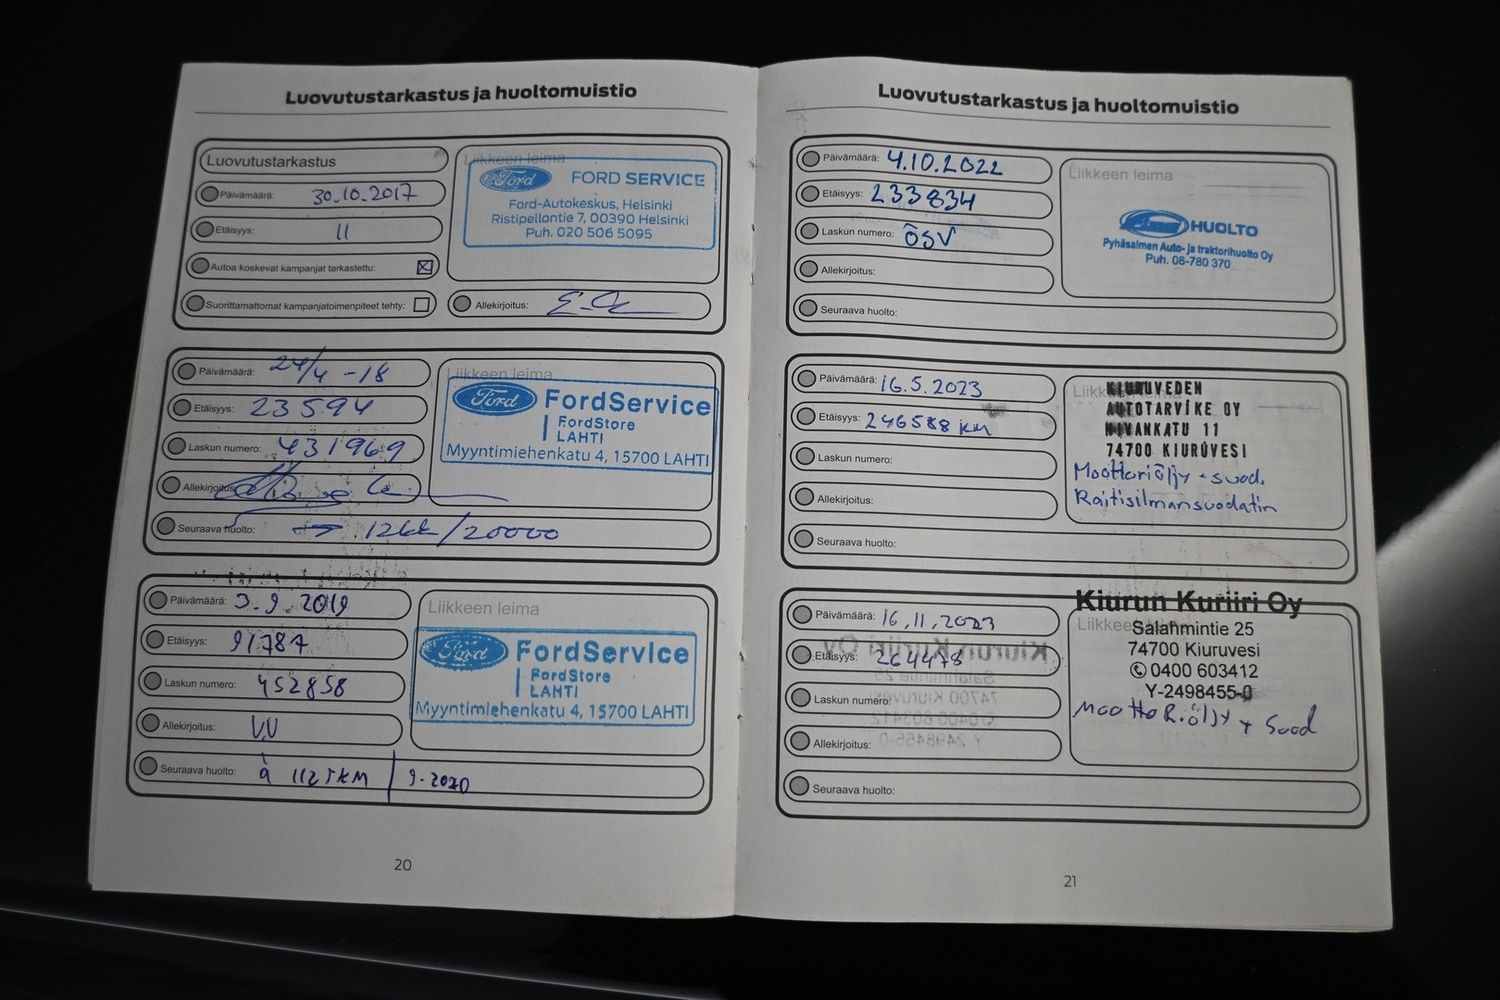 Luovutustarkastus ja huoltomuistio
Luovutustarkastus
Päivämäärä: 30.10.2017
Etäisyys: 11
Autoa koskevat kampanjat tarkastettu:
Suorittamattomat kampanjatoimenpiteet tehty:
Liikkeen leima
Ford FORD SERVICE
Ford-Autokeskus, Helsinki
Ristipellontie 7, 00390 Helsinki
Puh. 020 506 5095
Allekirjoitus:
Päivämäärä: 24/4 -18
Etäisyys: 23594
Laskun numero: 431969
Allekirjoitus:
Seuraava huolto: → 12kk/20000
Liikkeen leima
Ford FordService
FordStore
LAHTI
Myyntimiehenkatu 4, 15700 LAHTI
Päivämäärä: 3.9.2019
Etäisyys: 91787
Laskun numero: 452858
Allekirjoitus: VV
Seuraava huolto: à 112TKM | 9-2020
Liikkeen leima
Ford FordService
FordStore
LAHTI
Myyntimiehenkatu 4, 15700 LAHTI
20
Luovutustarkastus ja huoltomuistio
Päivämäärä: 4.10.2022
Etäisyys: 233834
Laskun numero: ÖSV
Allekirjoitus:
Seuraava huolto:
Liikkeen leima
HUOLTO
Pyhäsalmen Auto- ja traktorihuolto Oy
Puh. 08-780 370
Päivämäärä: 16.5.2023
Etäisyys: 246588 km
Laskun numero:
Allekirjoitus:
Seuraava huolto:
Liikkeen leima
KIURUVEDEN
AUTOTARVIKE OY
NIVANKATU 11
74700 KIURUVESI
Moottoriöljy + suod.
Raitisilmansuodatin
Päivämäärä: 16.11.2023
Etäisyys: 264478
Laskun numero:
Allekirjoitus:
Seuraava huolto:
Liikkeen leima
Kiurun Kuriiri Oy
Salahmintie 25
74700 Kiuruvesi
✆0400 603412
Y-2498455-0
Moottoriöljy + Suod
21